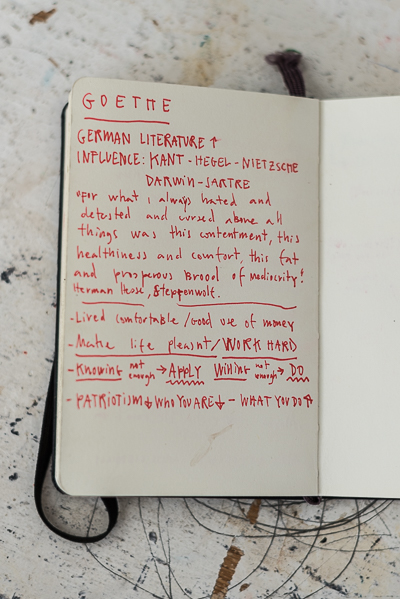 GOETHE
GERMAN LITERATURE ↑
INFLUENCE: KANT - HEGEL - NIETZSCHE
DARWIN - SARTRE
"For what i always hated and
detested and cursed above all
things was this contentment, this
healthiness and comfort, this fat
and prosperous brood of mediocrity!
Herman Hesse, Steppenwolf.
- Lived comfortable / Good use of money
- Make life pleasnt / WORK HARD
- Knowing not enough → APPLY Willing not enough → DO
- PATRIOTISM ↓ WHO YOU ARE ↓ - WHAT YOU DO ↑